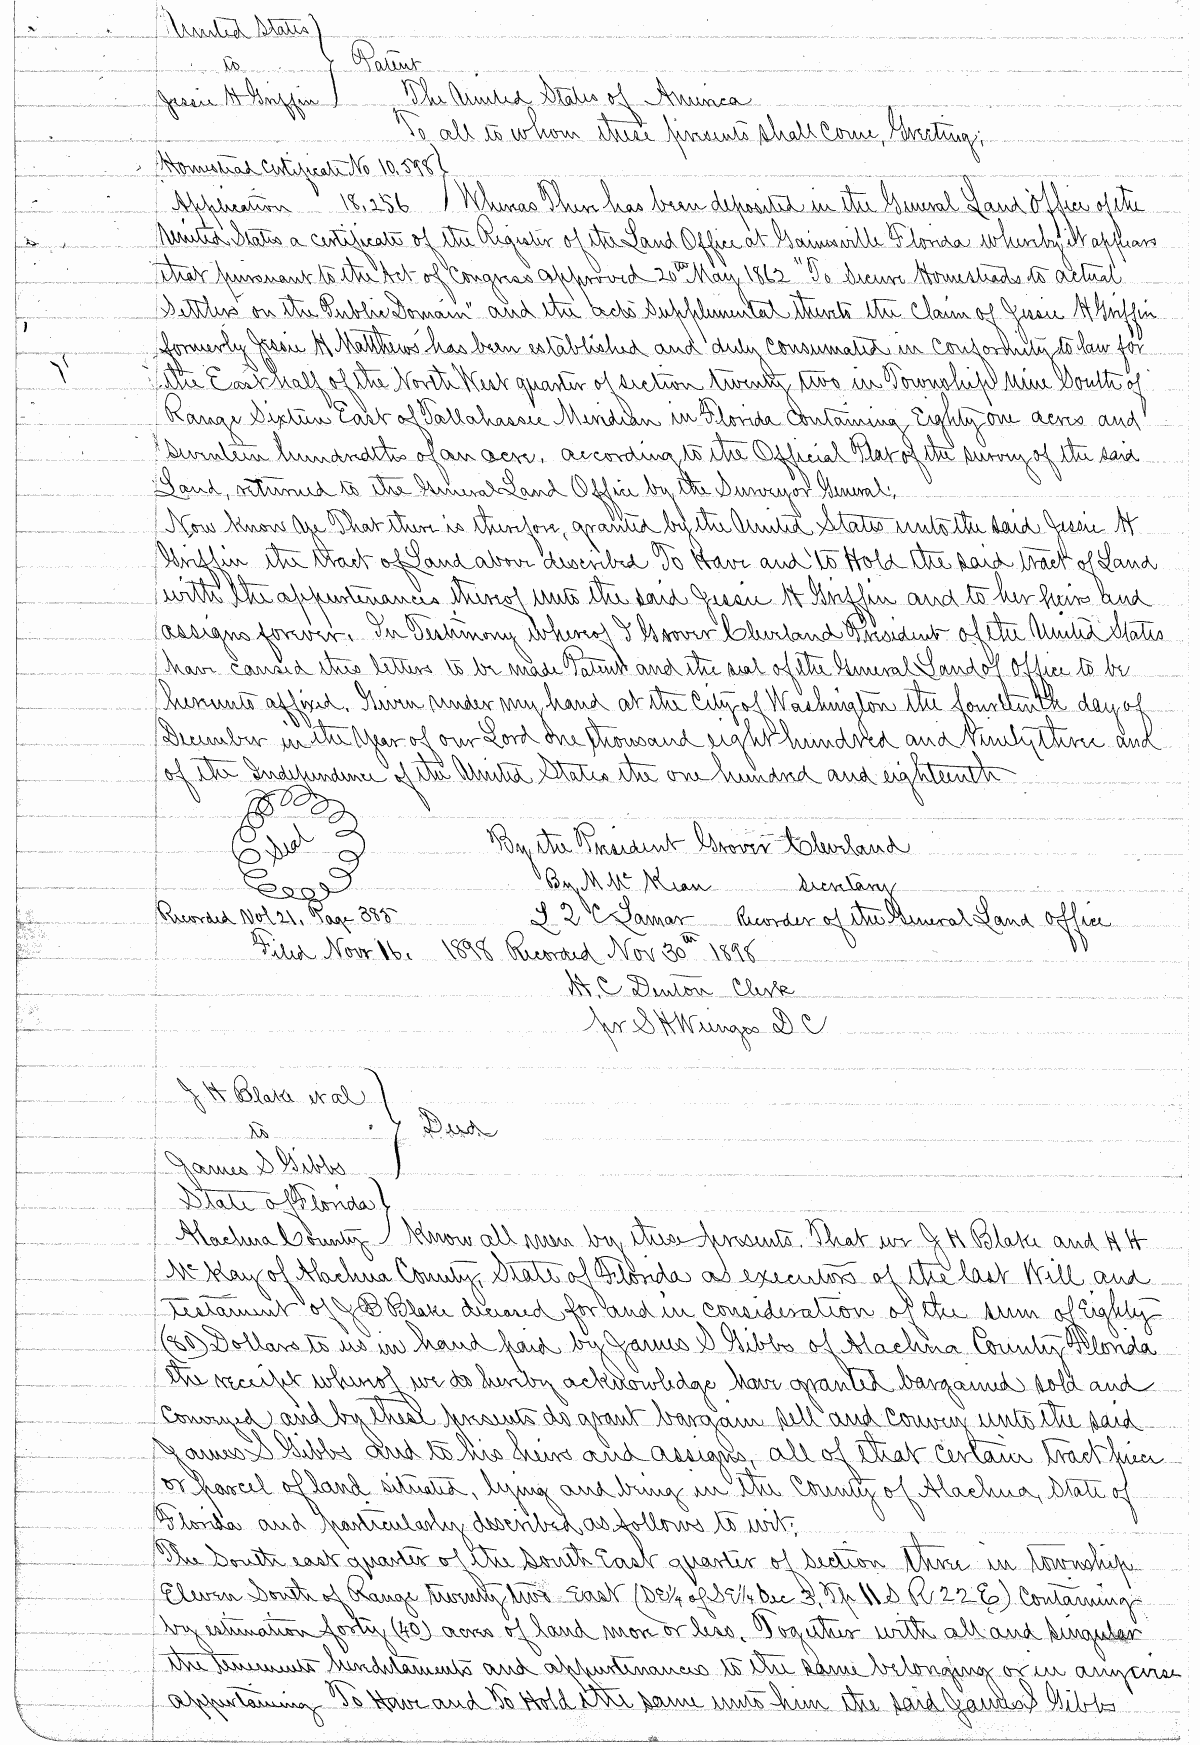 United States
to
Patent
Jessie H Griffin
The United States of America
To all to whom these presents shall come, Greeting;
Homestead Certificate No 10,598
Application 18,256 Whereas There has been deposited in the General Land Office of the
United States a certificate of the Register of the Land Office at Gainsville Florida whereby it appears
that pursuant to the Act of Congress approved 20th May 1862 "To Secure Homesteads to actual
Settlers on the Public Domain" and the acts supplemental thereto the Claim of Jessie H Griffin
formerly Jessie H Matthews has been established and duly consumated in conformity to law for
the East half of the North West quarter of section twenty two in Township Nine South of
Range Sixteen East of Tallahassee Meridian in Florida containing Eighty one acres and
Seventeen hundredths of an acre, according to the Official Plat of the survey of the said
Land, returned to the General Land Office by the Surveyor General;
Now know Ye That there is therefore, granted by the United States unto the said Jessie H
Griffin the tract of Land above described To Have and to Hold the said tract of Land
with the appurtenances thereof unto the said Jessie H Griffin and to her heirs and
assigns forever. In Testimony whereof I Grover Cleveland President of the United States
have caused this letters to be made Patent and the seal of the General Land of Office to be
hereunto affixed. Given under my hand at the City of Washington the fourteenth day of
December in the Year of our Lord one thousand eight hundred and Ninety three and
of the Independence of the United States the one hundred and eighteenth
Seal
By the President Grover Cleveland
By M McKean Secretary
Recorded Vol 21, Page 385 L Q C Lamar Recorder of the General Land Office
Filed Nov 16. 1898 Recorded Nov 30th 1898
H. C Denton Clerk
pr S H Wienges D C
J H Blake et al
to
Deed
James S Gibbs
State of Florida
Alachua County Know all men by these presents. That we J H Blake and H H
McKay of Alachua County, State of Florida as executors of the last Will and
testament of J B Blake deceased for and in consideration of the sum of Eighty
(80) Dollars to us in hand paid by James S Gibbs of Alachua County Florida
the receipt whereof we do hereby acknowledge have granted bargained sold and
conveyed and by these presents do grant bargain sell and convey unto the said
James S Gibbs and to his heirs and assigns, all of that certain tract piece
or parcel of land situated, lying and being in the County of Alachua, State of
Florida and particularly described as follows to wit;
The South east quarter of the South East quarter of section three in township
Eleven South of Range twenty two East (SE¼ of SE¼ Sec 3, Tp 11 S R 22 E) containing
by estimation forty (40) acres of land more or less. Together with all and singular
the tenements hereditaments and appurtenances to the same belonging or in anywise
appertaining To Have and To Hold the same unto him the said James S Gibbs